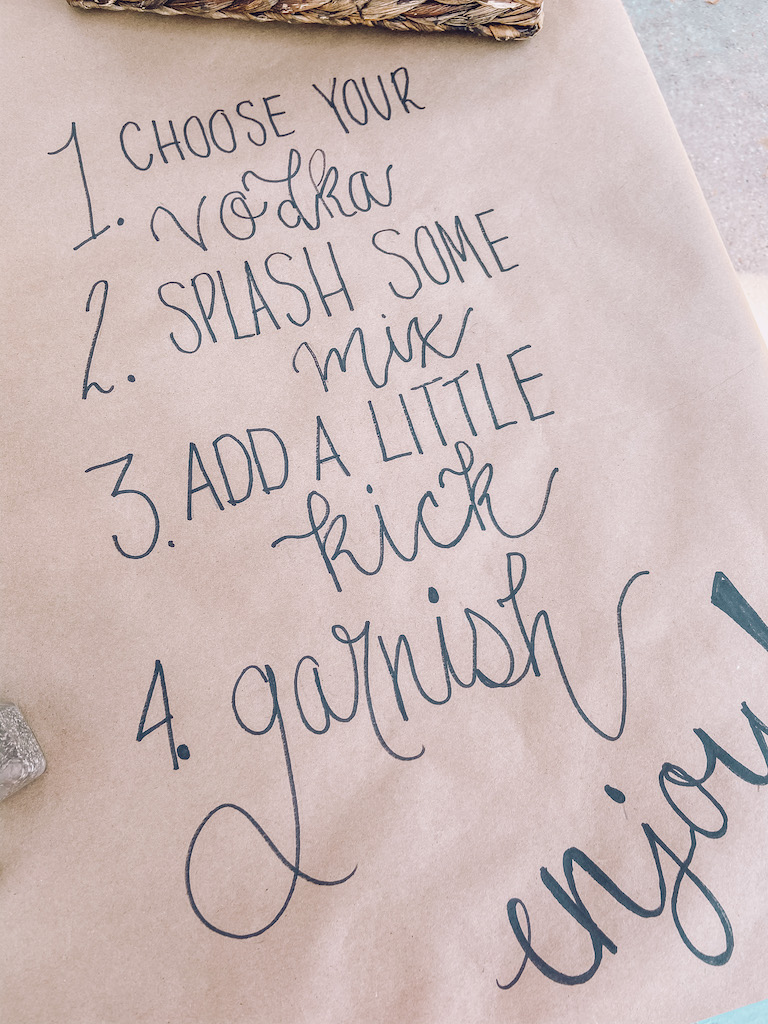 1. CHOOSE YOUR
vodka
2. SPLASH SOME
mix
3. ADD A LITTLE
kick
4. garnish
enjoy!